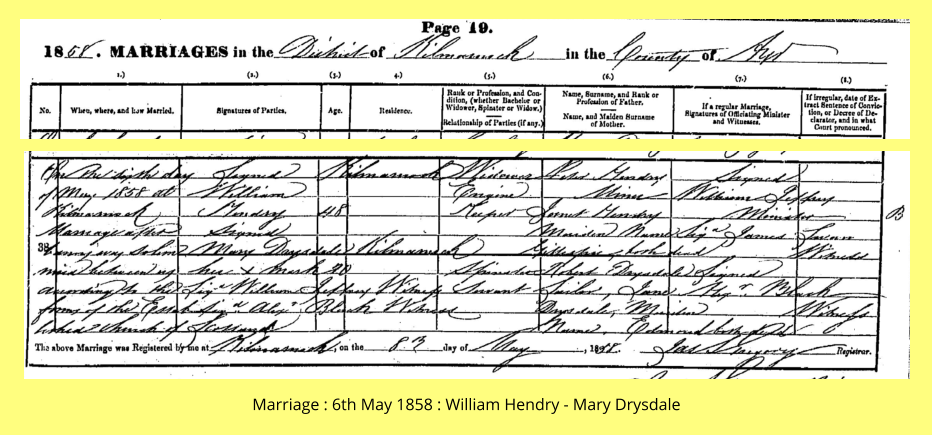 Page 19.
1858. MARRIAGES in the District of Kilmarnock in the County of Ayr
1.) (2.) (3.) 4.) (5.) (6.) (7.) (8.)
No. When, where, and how Married. Signatures of Parties. Age. Residence. Rank or Profession, and Condition, (whether Bachelor or Widower, Spinster or Widow.) Relationship of Parties (if any.) Name, Surname, and Rank or Profession of Father. Name, and Maiden Surname of Mother. If a regular Marriage, Signatures of Officiating Minister and Witnesses. If irregular, date of Extract Sentence of Conviction, or Decree of Declarator, and in what Court pronounced.
On the sixth day Signed Kilmarnock Widower Hendry Signed
of May 1858 at William Engine Miner William Jeffrey
Kilmarnock Hendry 48 Keeper Janet Hendry Minister B
Marriage after Signed Maiden Name Sigd James
38 Banns was solem Mary Drysdale Kilmarnock Gillespie both dead Witness
nized between us her x mark 40 Spinster Robert Drysdale Signed
according to the Sigd William Jeffrey Witness Servant Sailor Jane Black
forms of the Estab Sigd Alexr Black Witness Drysdale Maiden Witness
lished Church of Scotland Name Edmond both dead
The above Marriage was Registered by me at Kilmarnock, on the 8th day of May, 1858. Registrar.
Marriage : 6th May 1858 : William Hendry - Mary Drysdale